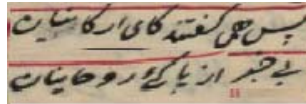 پس همی گفتند کای ارکانیان
بی خبر از پاکئ روحانیان